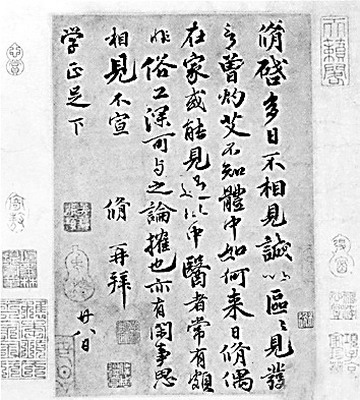 脩啓多日不相見誠以區〻見發
言曾灼艾不知體中如何来日脩偶
在家或能見過此中醫者常有頗
非俗工深可与之論搉也亦有閑事思
相見不宣 脩再拜 廿八日
学正足下
天籟閣